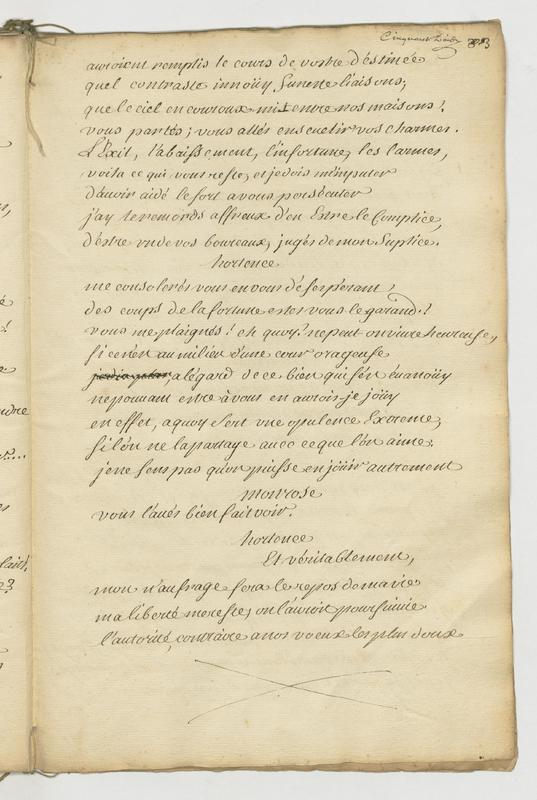 auroient remplis le cours de vostre déstinée
quel contraste innoüy funeste liaisons;
que le ciel en couroux mit entre nos maisons!
vous partés; vous allés enseuelir vos charmes.
L'Exil, l'abaissement, l'infortune, les larmes,
voila ce qui vous reste, et je dois m'imputer
d'auoir aidé le sort a vous persécuter
j'ay le remords affreux d'en Estre le Complice,
d'estre vn de vos boureaux, jugés de mon Suplice.
hortence
me consolerés vous en vous déséspérant?
des coups de la fortune estes vous le garand?
vous me plaignés! eh quoy? ne peut on viure heureuse,
si ce n'est au milieu d'une cour orageuse
a légard de ce bien qui s'est éuanoüy
ne pouuant estre à vous en aurois-je joüy
en effet, a quoy sert vne opulence Extreme,
si l'on ne la partage auec ce que l'on aime;
je ne sens pas qu'on puisse en joüir autrement
monrose
vous l'aués bien fait voir.
hortence
Et véritablement,
mon naufrage fera le repos de ma vie
ma liberté me reste, on l'auroit poursuiuie
l'autorité, contraire a nos voeux les plus doux